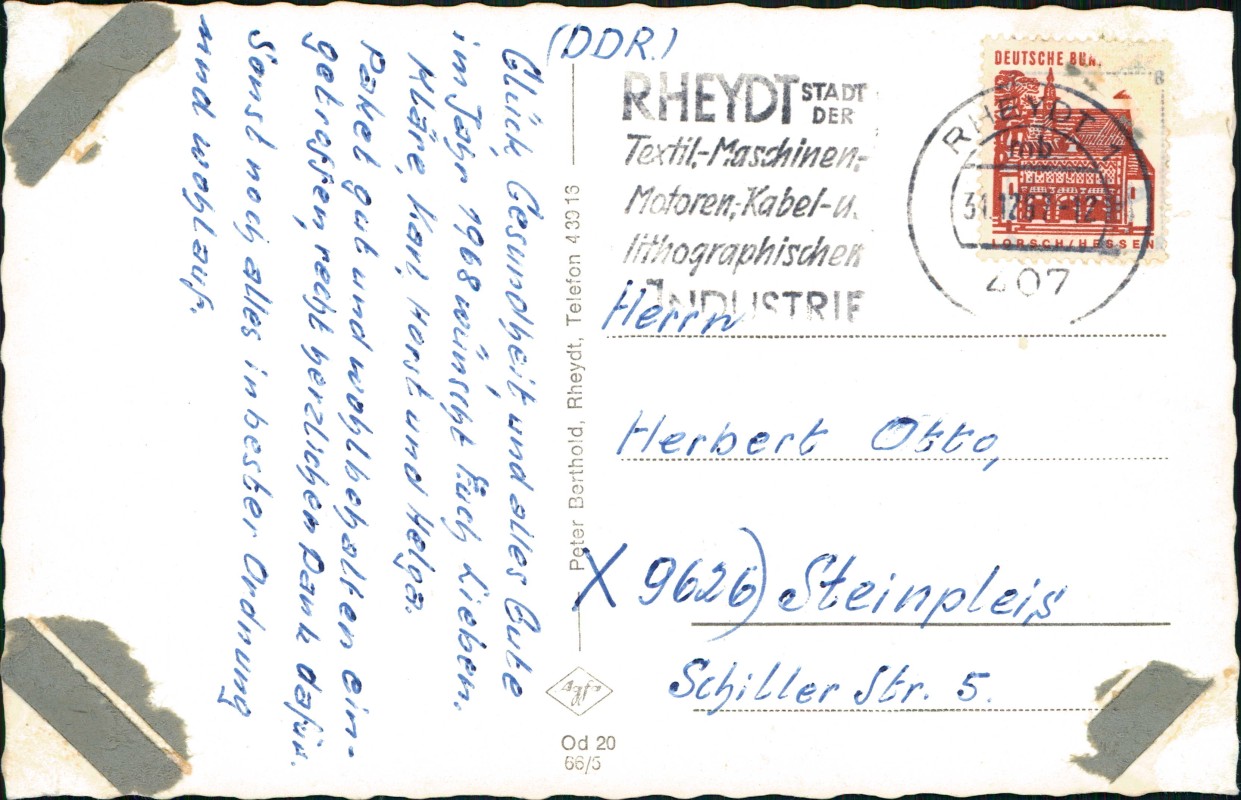 Glück, Gesundheit und alles Gute
im Jahr 1968 wünscht Euch Lieben.
Kläre, Karl, Horst und Helga.
Paket gut und wohlbehalten ein-
getroffen, recht herzlichen Dank dafür.
Sonst noch alles in bester Ordnung
und wohlauf.
(DDR.)
RHEYDT STADT
DER
Textil,-Maschinen,-
Motoren,-Kabel-u.
lithographischen
INDUSTRIE
DEUTSCHE BUN
8
LORSCH/HESSEN
RHEYDT 1
mb
31.12.67-12
407
Herrn
Herbert Otto,
X 9626) Steinpleis
Schiller Str. 5.
Peter Berthold, Rheydt, Telefon 43916
Agfa
Od 20
66/5